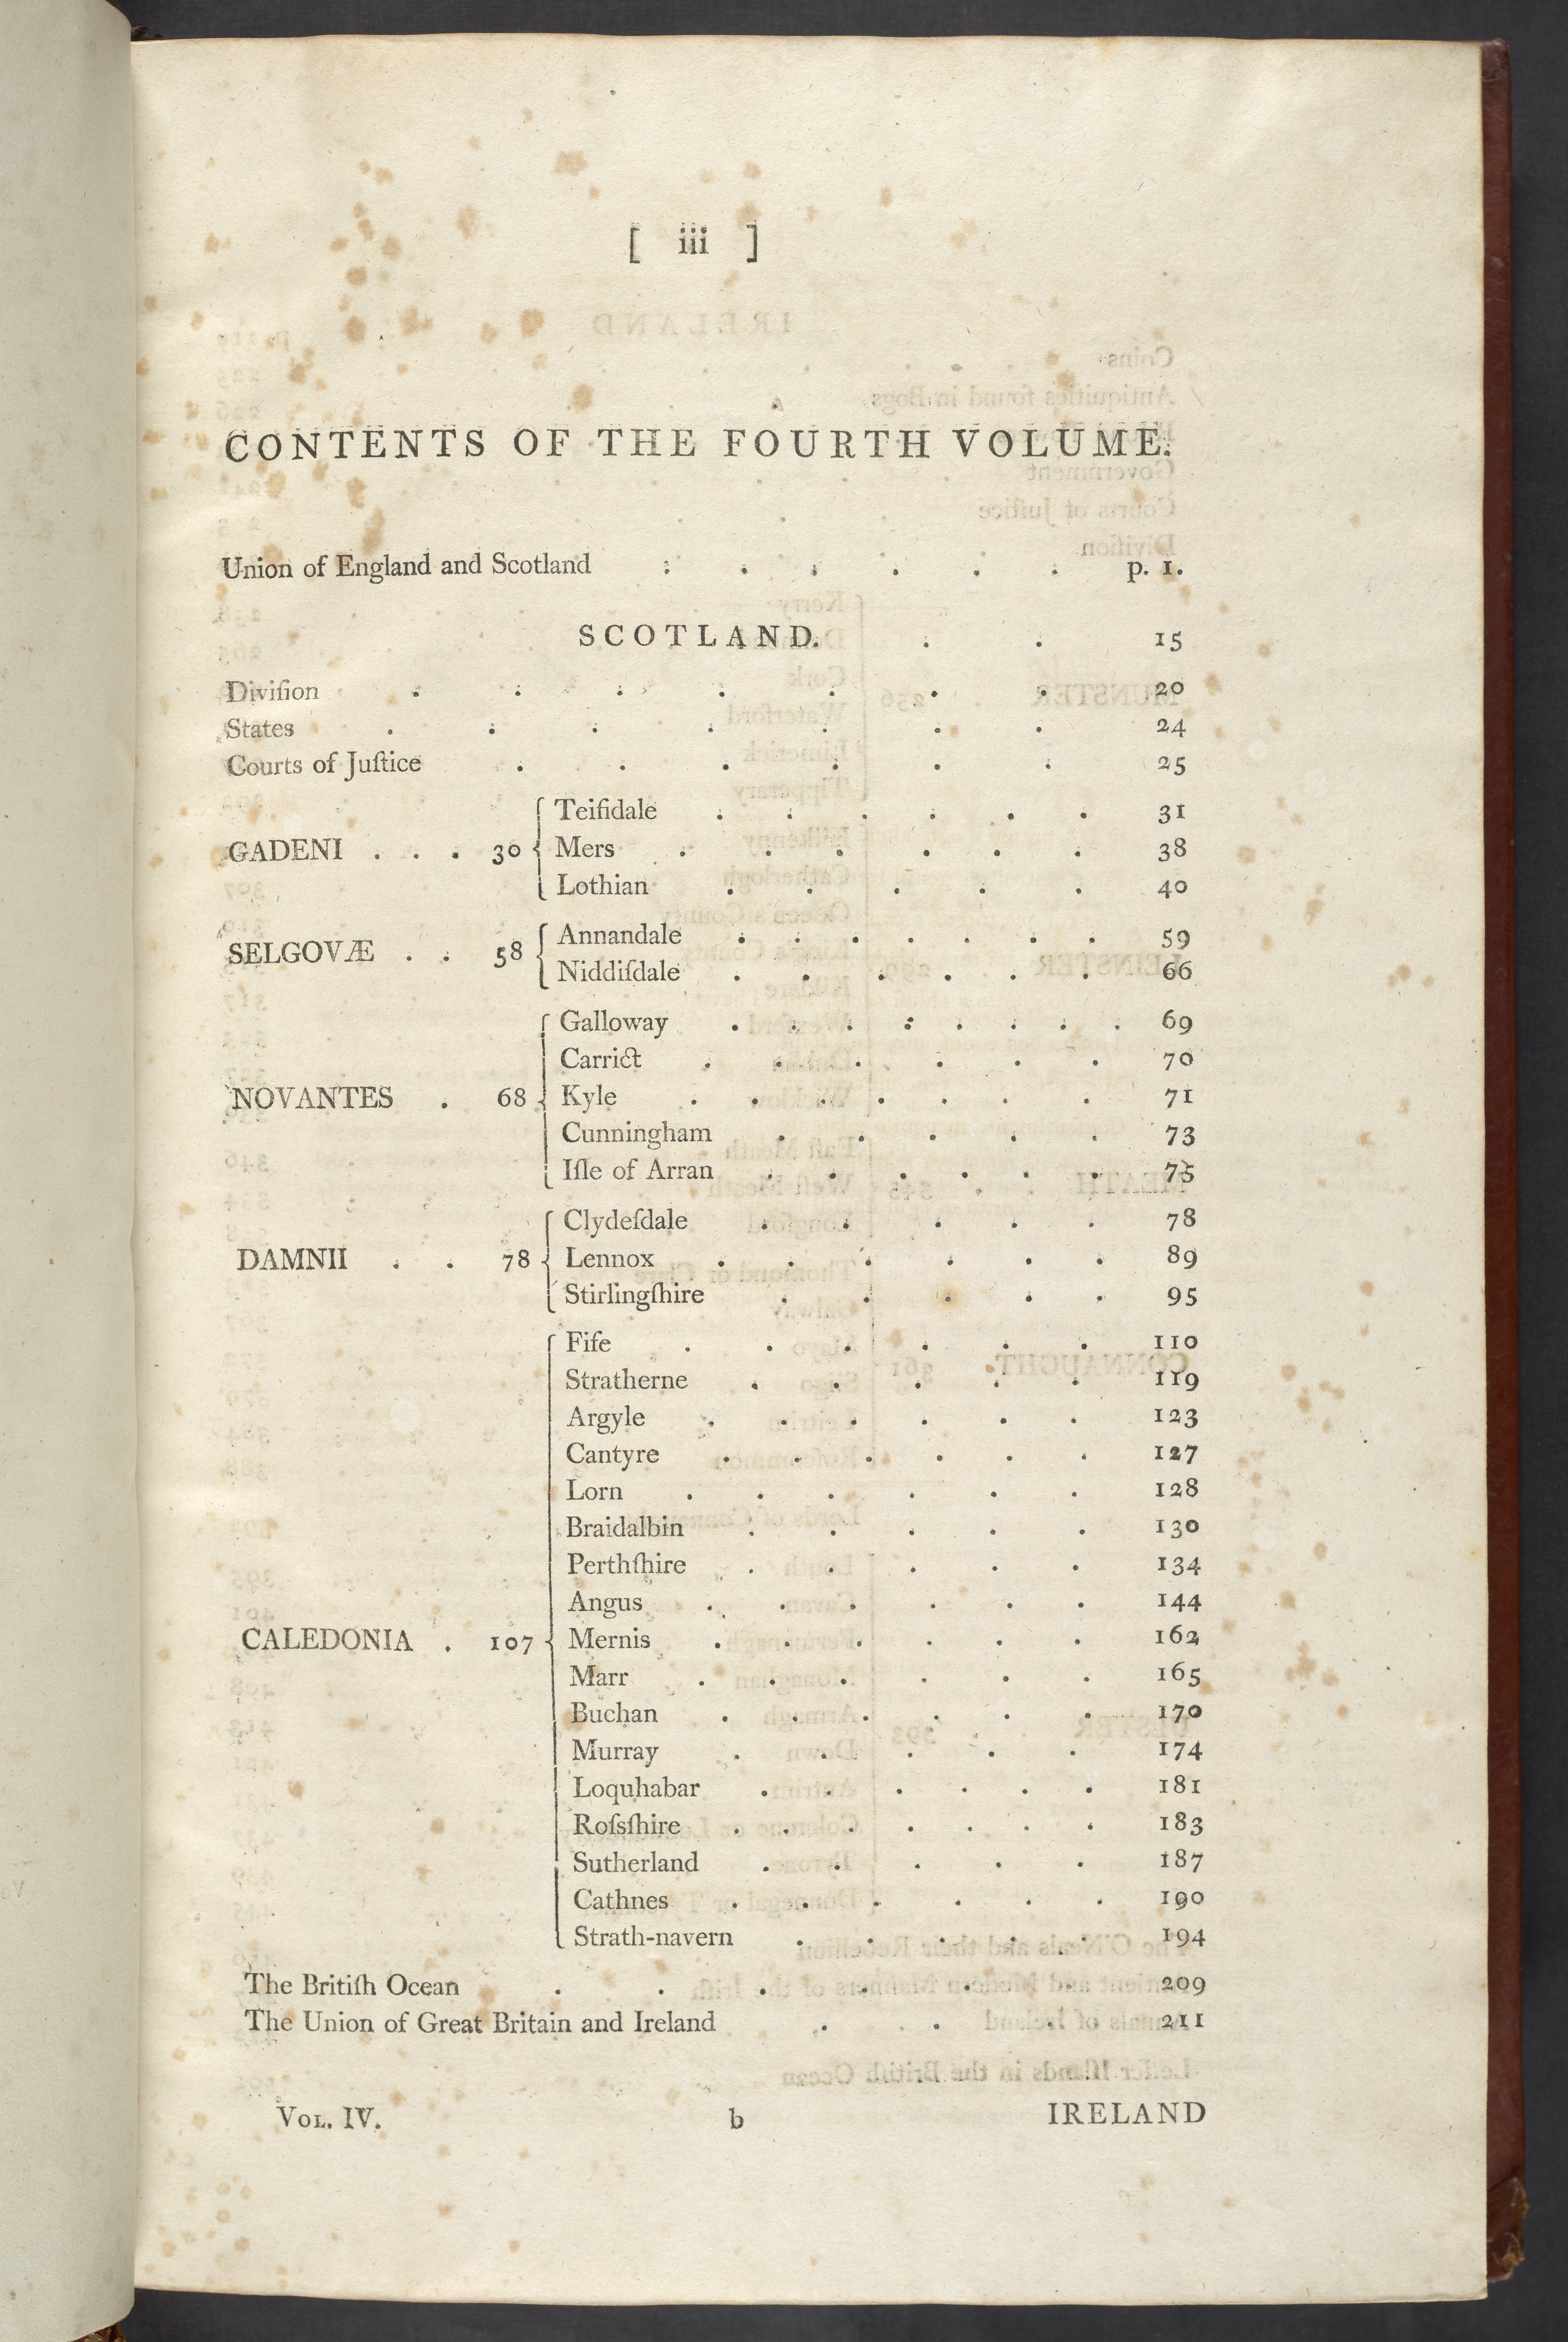 [ iii ]
CONTENTS OF THE FOURTH VOLUME.
Union of England and Scotland . . . . . . p. 1.
SCOTLAND. . . 15
Diviſion . . . . . . . 20
States . . . . . . . 24
Courts of Juſtice . . . . . . 25
Teifidale . . . . . . 31
GADENI . . . 30 Mers . . . . . . 38
Lothian . . . . . 40
Annandale . . . . . . . 59
SELGOVÆ . . 58
Niddiſdale . . . . . . 66
Galloway . . . . . . . . 69
Carrict . . . . . . 70
NOVANTES . 68 Kyle . . . . . . . 71
Cunningham . . . . . 73
Iſle of Arran . . . . . . 75
Clydeſdale . . . . . 78
DAMNII . . 78 Lennox . . . . . . 89
Stirlingſhire . . . . . 95
Fife . . . . . . 110
Stratherne . . . . . 119
Argyle . . . . . . 123
Cantyre . . . . . . 127
Lorn . . . . . . 128
Braidalbin . . . . . 130
Perthſhire . . . . . 134
Angus . . . . . . 144
CALEDONIA . 107 Mernis . . . . . . 162
Marr . . . . . . 165
Buchan . . . . . . 170
Murray . . . . . 174
Loquhabar . . . . . . 181
Roſsſhire . . . . . . . 183
Sutherland . . . . . 187
Cathnes . . . . . . 190
Strath-navern . . . . . 194
The Britiſh Ocean . . . . . . 209
The Union of Great Britain and Ireland . . . 211
VOL. IV. b IRELAND